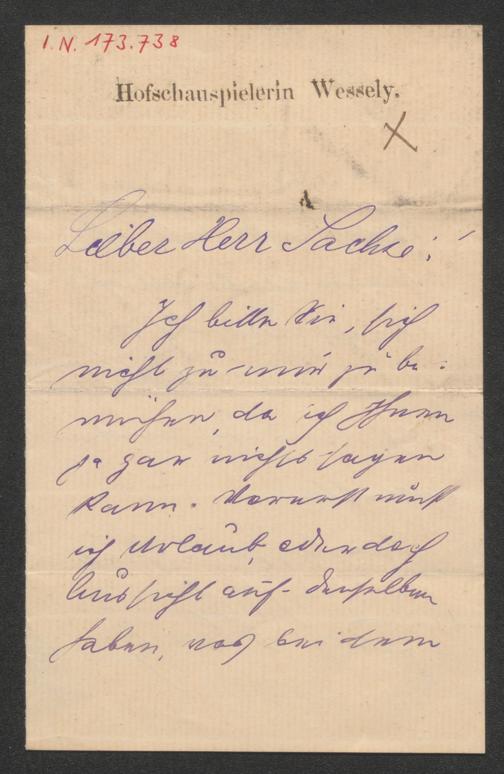 I.N. 173.738
Hofschauspielerin Wessely.
Lieber Herr Sachse!
Ich bitte Sie, sich
nicht zu mir zu be-
mühen, da ich Ihnen
ja gar nichts sagen
kann. Vorerst muß
ich Urlaub, oder doch
Aussicht auf denselben
haben, was bei dem